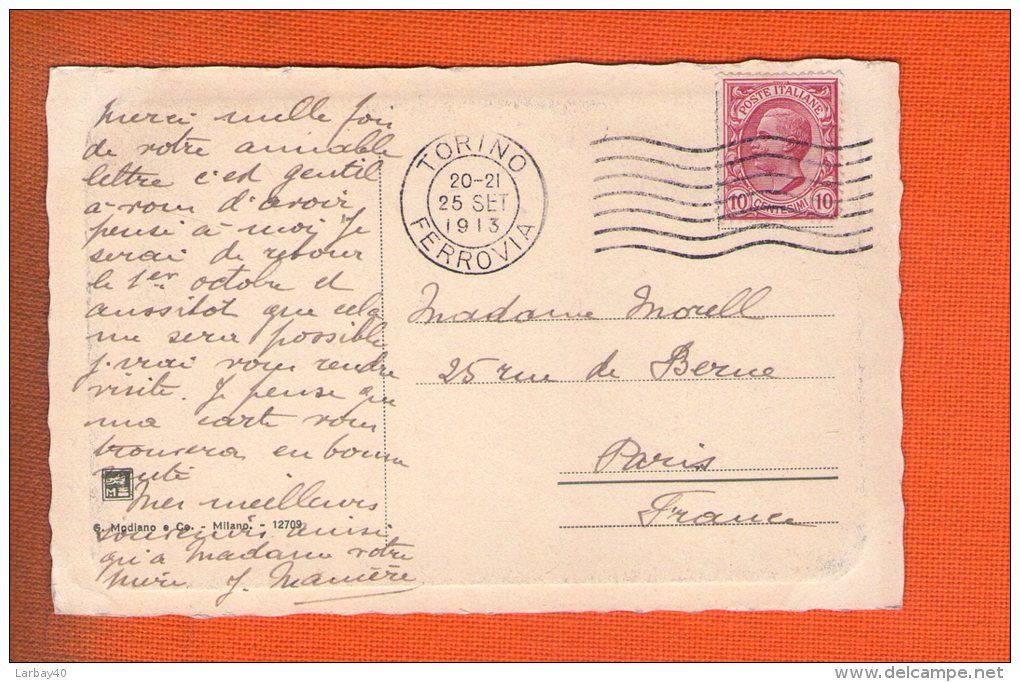 Merci mille foi
de votre aimable
lettre c'est gentil
à vous d'avoir
pensé à moi Je
serai de retour
le 1er octobre et
aussitot que cela
me sera possible
j'irai vous rendre
visite. Je pense que
ma carte vous
trouvera en bonne
santé
Mes meilleurs
souvenirs ainsi
qu'a Madame votre
mère. J. Manière
G. Modiano e Co. - Milano. - 12709
TORINO
20-21
25 SET
1913
FERROVIA
POSTE ITALIANE
10 CENTESIMI 10
Madame Morell
25 rue de Berne
Paris
France
Larbay40
www.delcampe.net